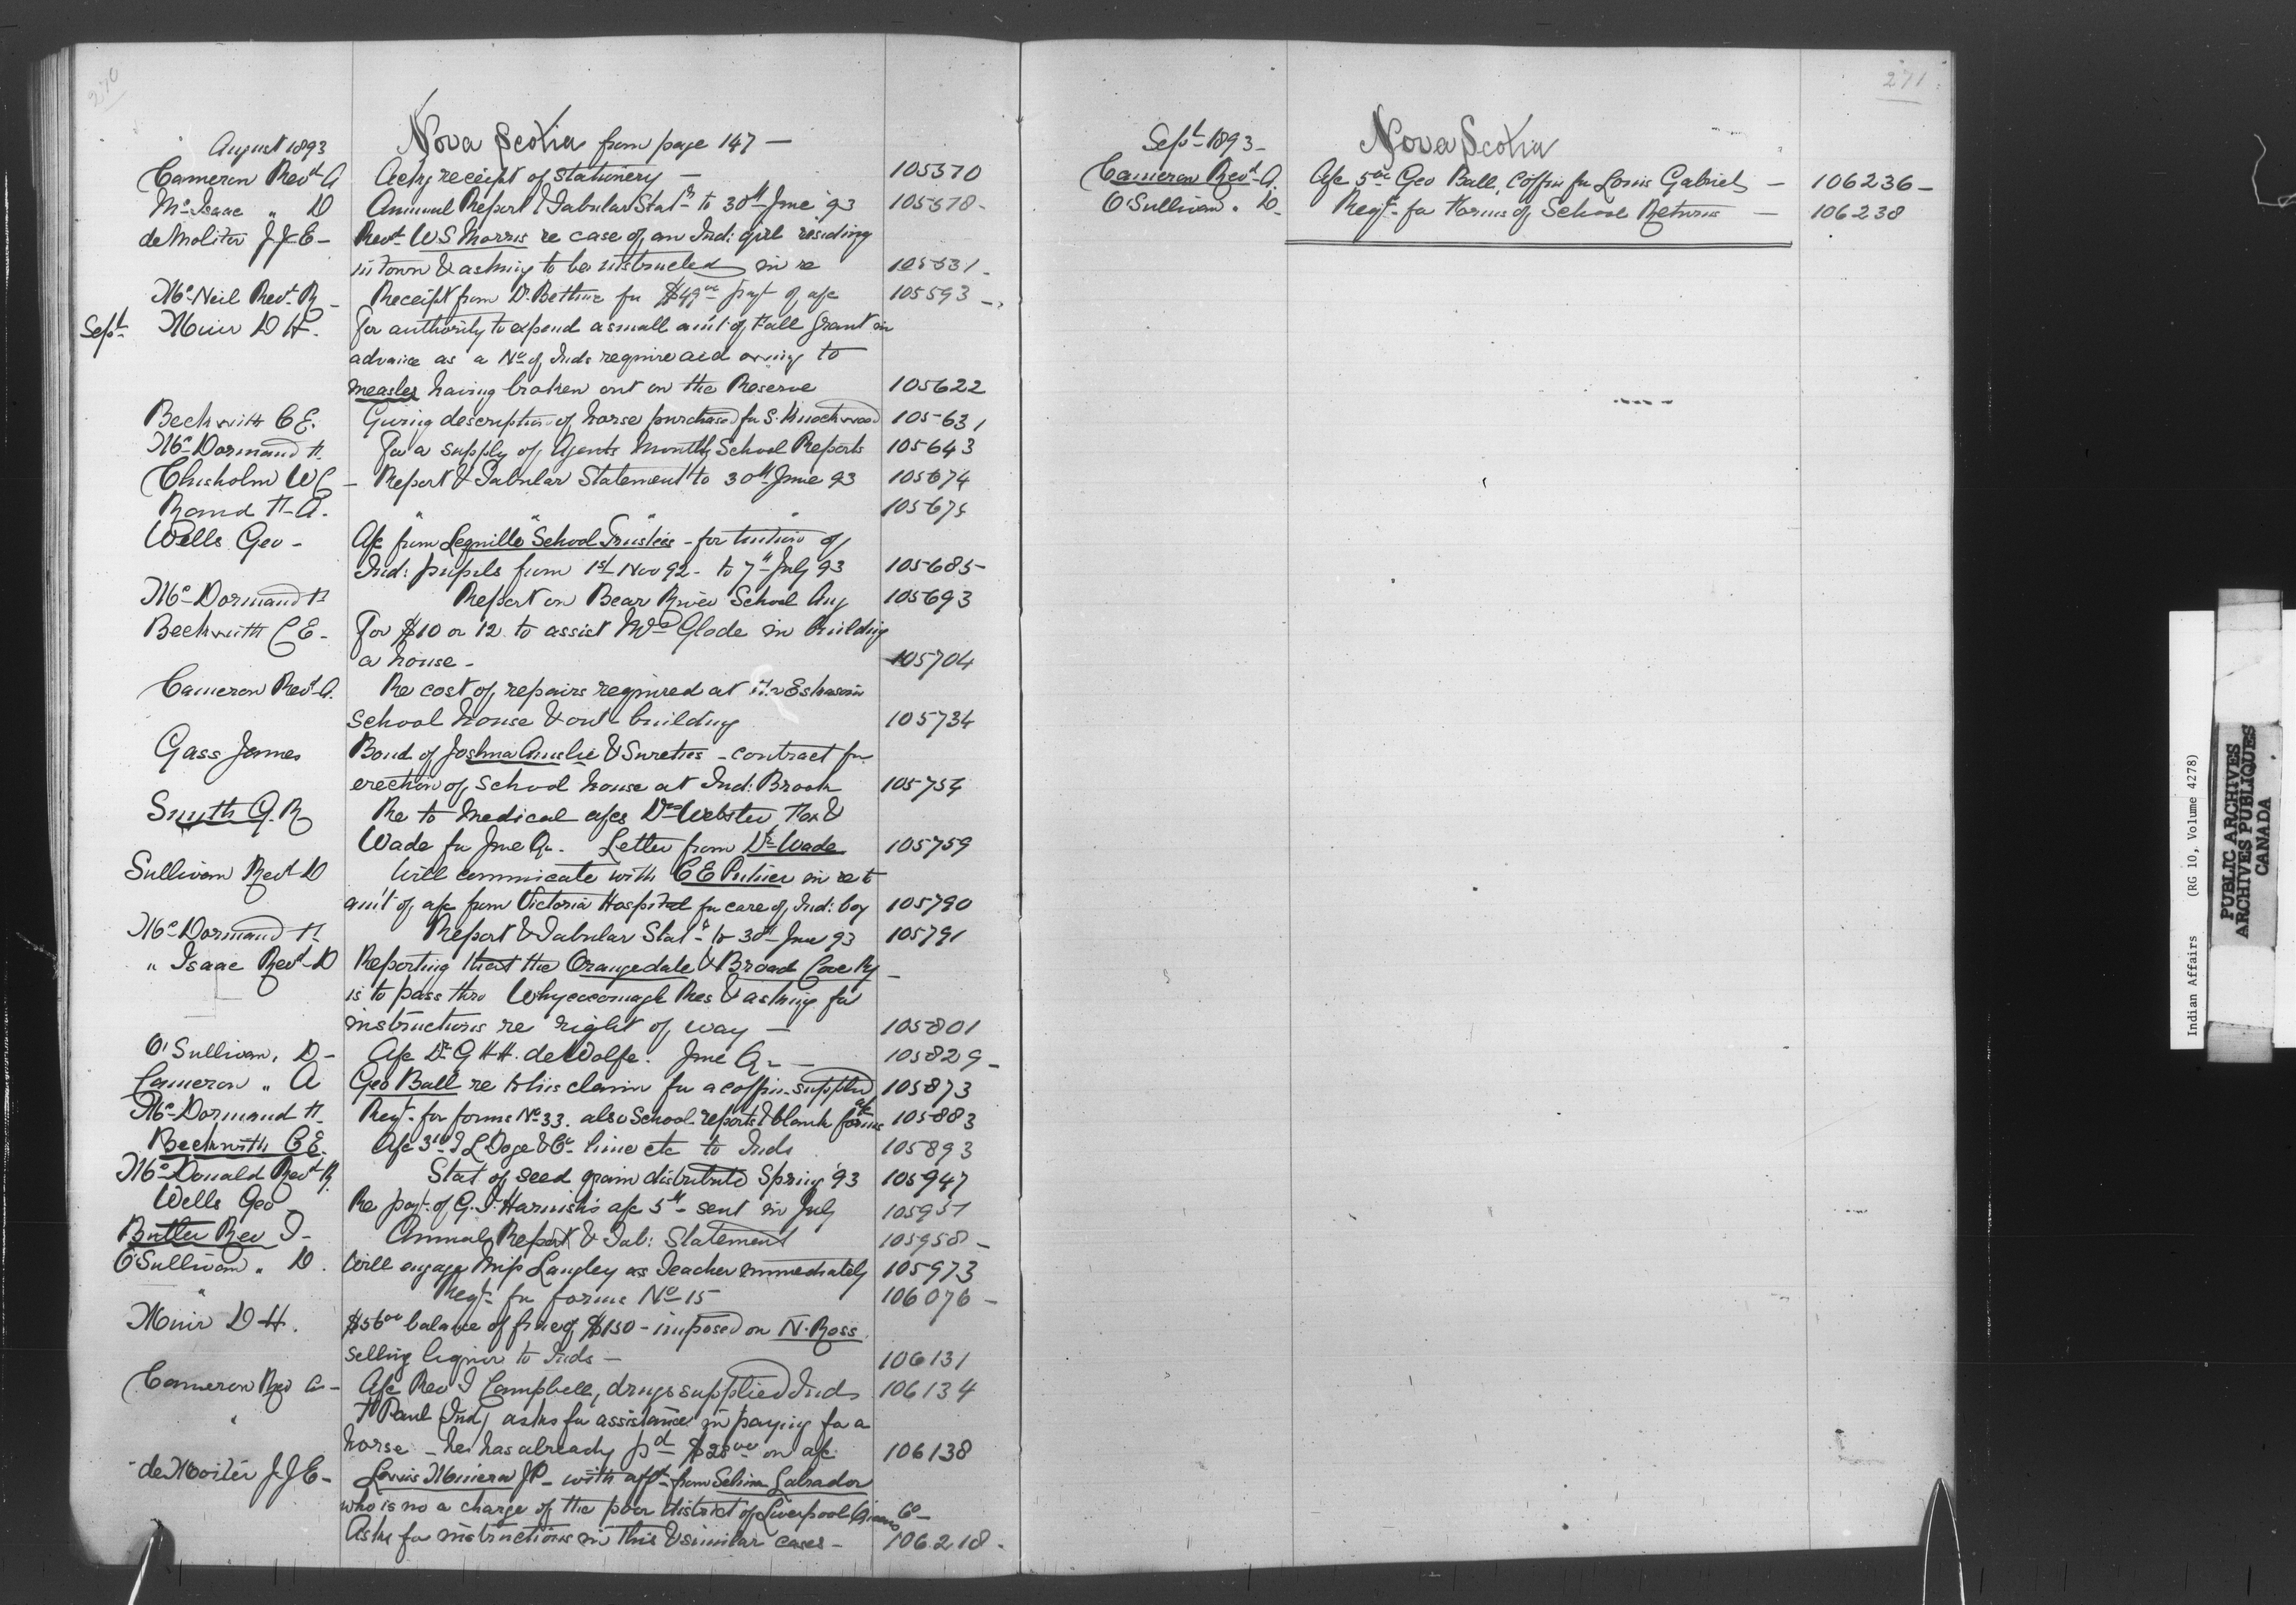 270
August 1893 Nova Scotia from page 147 —
Cameron Revd A Ackg receipt of stationery — 105370
Mc Isaac " D Annual Report & Tabular Statt to 30th June 93 105378 -
deMolitor J J E - Revd W S Morris re case of an Ind: girl residing
in town & asking to be instructed in re 105531 -
Mc Neil Revd R - Receipt from Dr Bethune for $49 00 payt of a/c 105593 -
Sept Muir D H. For authority to expend a small am't of Fall Grant in
advance as a No of Inds require aid owing to
measles having broken out on the Reserve 105622
Beckwith C E. Giving description of horse purchased for S. Knockwood 105631
Mc Dormand H. For a supply of Agents Monthly School Reports 105643
Chisholm W C - Report & Tabular Statement to 30th June 93 105674
Rand F. A. " " " " 105675
Wells Geo - A/c from Lequille School Trustees - for tuition of
Ind: pupils from 1st Nov 92 - to 7th July 93 105685 -
Mc Dormand H Report on Bear River School Aug 105693
Beckwith C E - For $10 or 12 to assist Wm Glode in building
a house - 105704
Cameron Revd A. Re cost of repairs required at the Eskasoni
School house & out building 105734
Gass James Bond of Joshua Ainslie & Sureties - contract for
erection of School house at Ind: Brook 105754
Smyth G. R Re to Medical a/cs Drs Webster, Fox &
Wade for June Qr. Letter from Dr Wade 105759
Sullivan Revd D Will communicate with C E Putner in re to
am't of a/c from Victoria Hospital for care of Ind: boy 105790
Mc Dormand H. Report & Tabular Statt to 30th June 93 105791
" Isaac Revd D Reporting that the Orangedale & Broad Cove Ry -
is to pass thro Whycocomagh Res & asking for
instructions re right of way — 105801
O'Sullivan, D - A/c Dr G H H. deWolfe. June Qr — 105829 -
Cameron " A Geo Ball re to his claim for a coffin supplied 105873
Mc Dormand H. Reqt for forms No 33. also School reports & blank a/c forms 105883
Beckwith C E. A/c T L Doge & Co - lime etc to Inds 105893
Mc Donald Revd R. Stat of seed grain distributed Spring '93 105947
Wells Geo - Re payt of G. I. Harnish's a/c sent in July 105951
Butler Rev T - Annual Report & Tab: Statement 105958 -
O'Sullivan " D. Will engage Miss Langley as Teacher immediately 105973
" Reqt for forms No 15 106076 -
Muir D H. $56 00 balance of fine of $150 - imposed on N. Ross
selling liquor to Inds — 106131
Cameron Rev A - A/c Rev J Campbell, drugs supplied Inds 106134
" F Paul (Ind) asks for assistance in paying for a
horse - he has already pd $28 00 on a/c 106138
deMolitor J J E - Louis JP - with afft from Selina Labrador
who is no a charge of the poor district of Liverpool Queens Co -
Asks for instructions in this & similar cases - 106218 -
271
Sept 1893 - Nova Scotia
Cameron Revd A. A/c Geo Ball, Coffin for Louis Gabriel — 106236 -
O'Sullivan " D - Reqt for Forms of School Returns — 106238
Indian Affairs (RG 10, Volume 4278)
PUBLIC ARCHIVES
ARCHIVES PUBLIQUES
CANADA